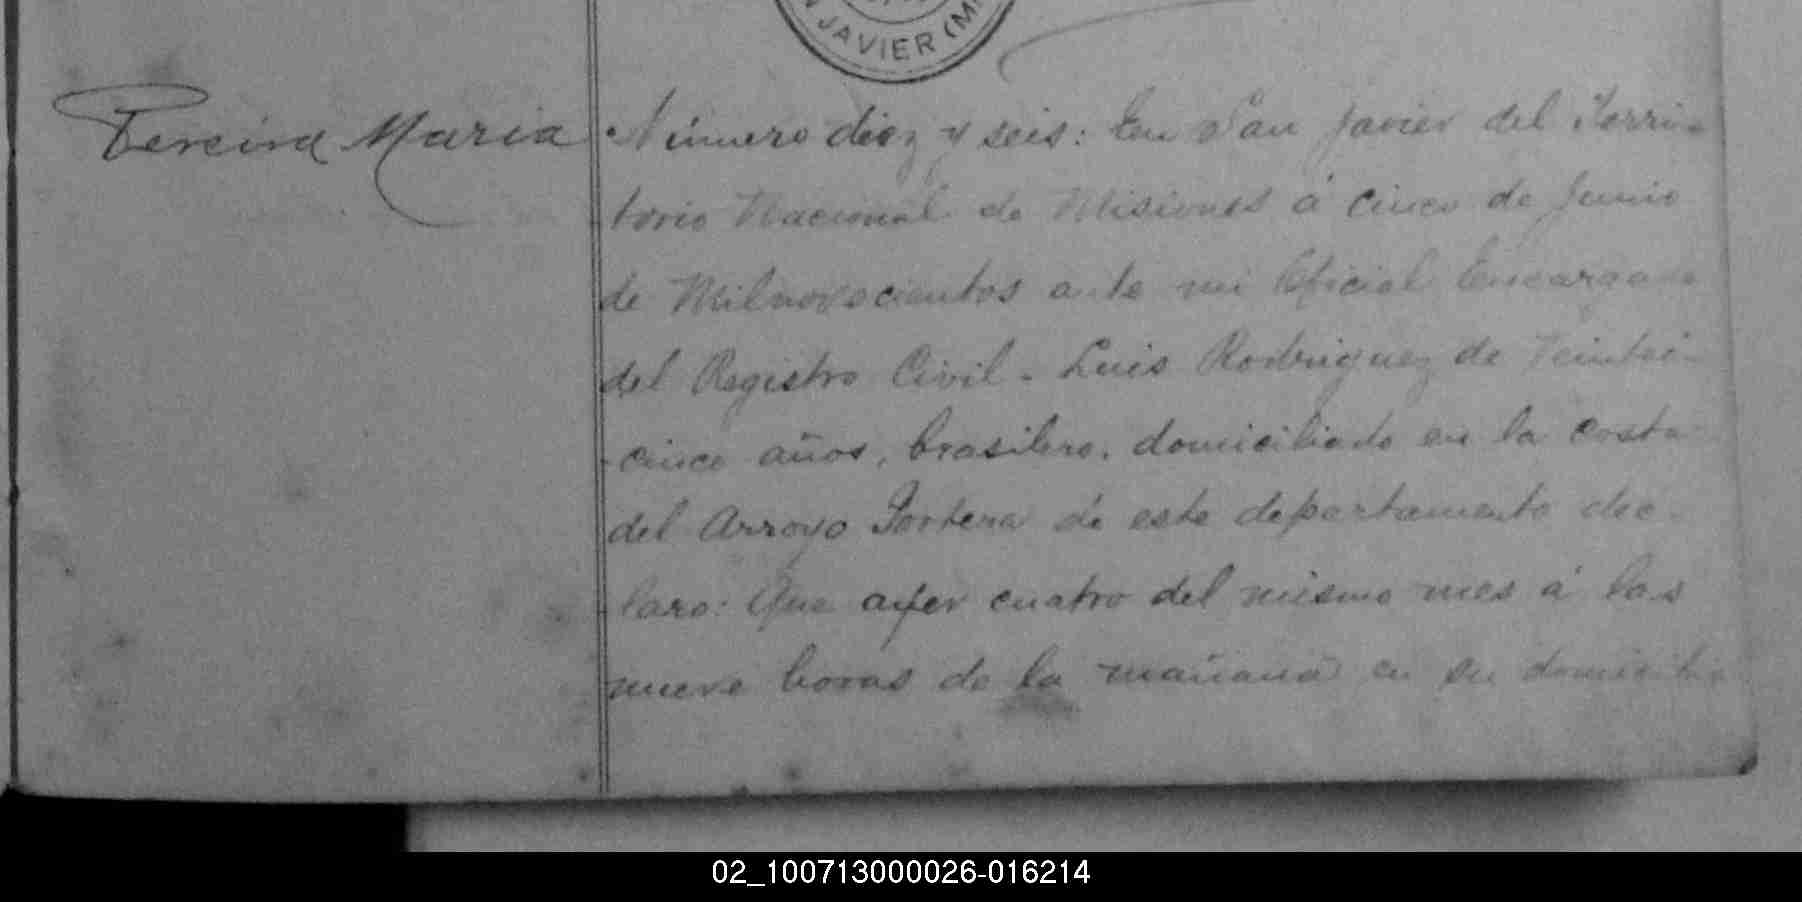 JAVIER (MI
Pereira Maria
Número diez y seis: En San Javier del Terri-
torio Nacional de Misiones á cinco de Junio
de Milnovecientos ante mi Oficial Encargado
del Registro Civil. Luis Rodriguez de Veinti-
cinco años, brasilero, domiciliado en la costa
del Arroyo Portera de este departamento dec-
laro: Que ayer cuatro del mismo mes á las
nueve horas de la mañana en su domicilio
02_100713000026-016214